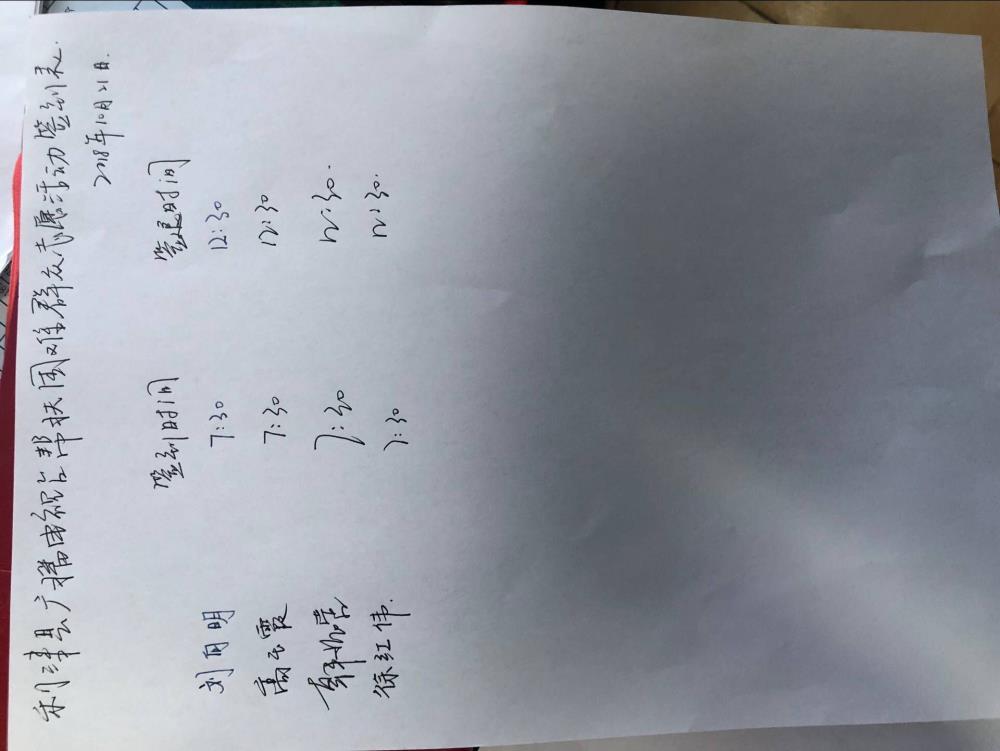 利津县广播电视台帮扶困难群众志愿活动签到表.
2018年10月21日.
签到时间 签退时间
刘月明 7:30 12:30
高玉霞 7:30 12:30
7:30 12:30.
徐红伟. 7:30 12:30.